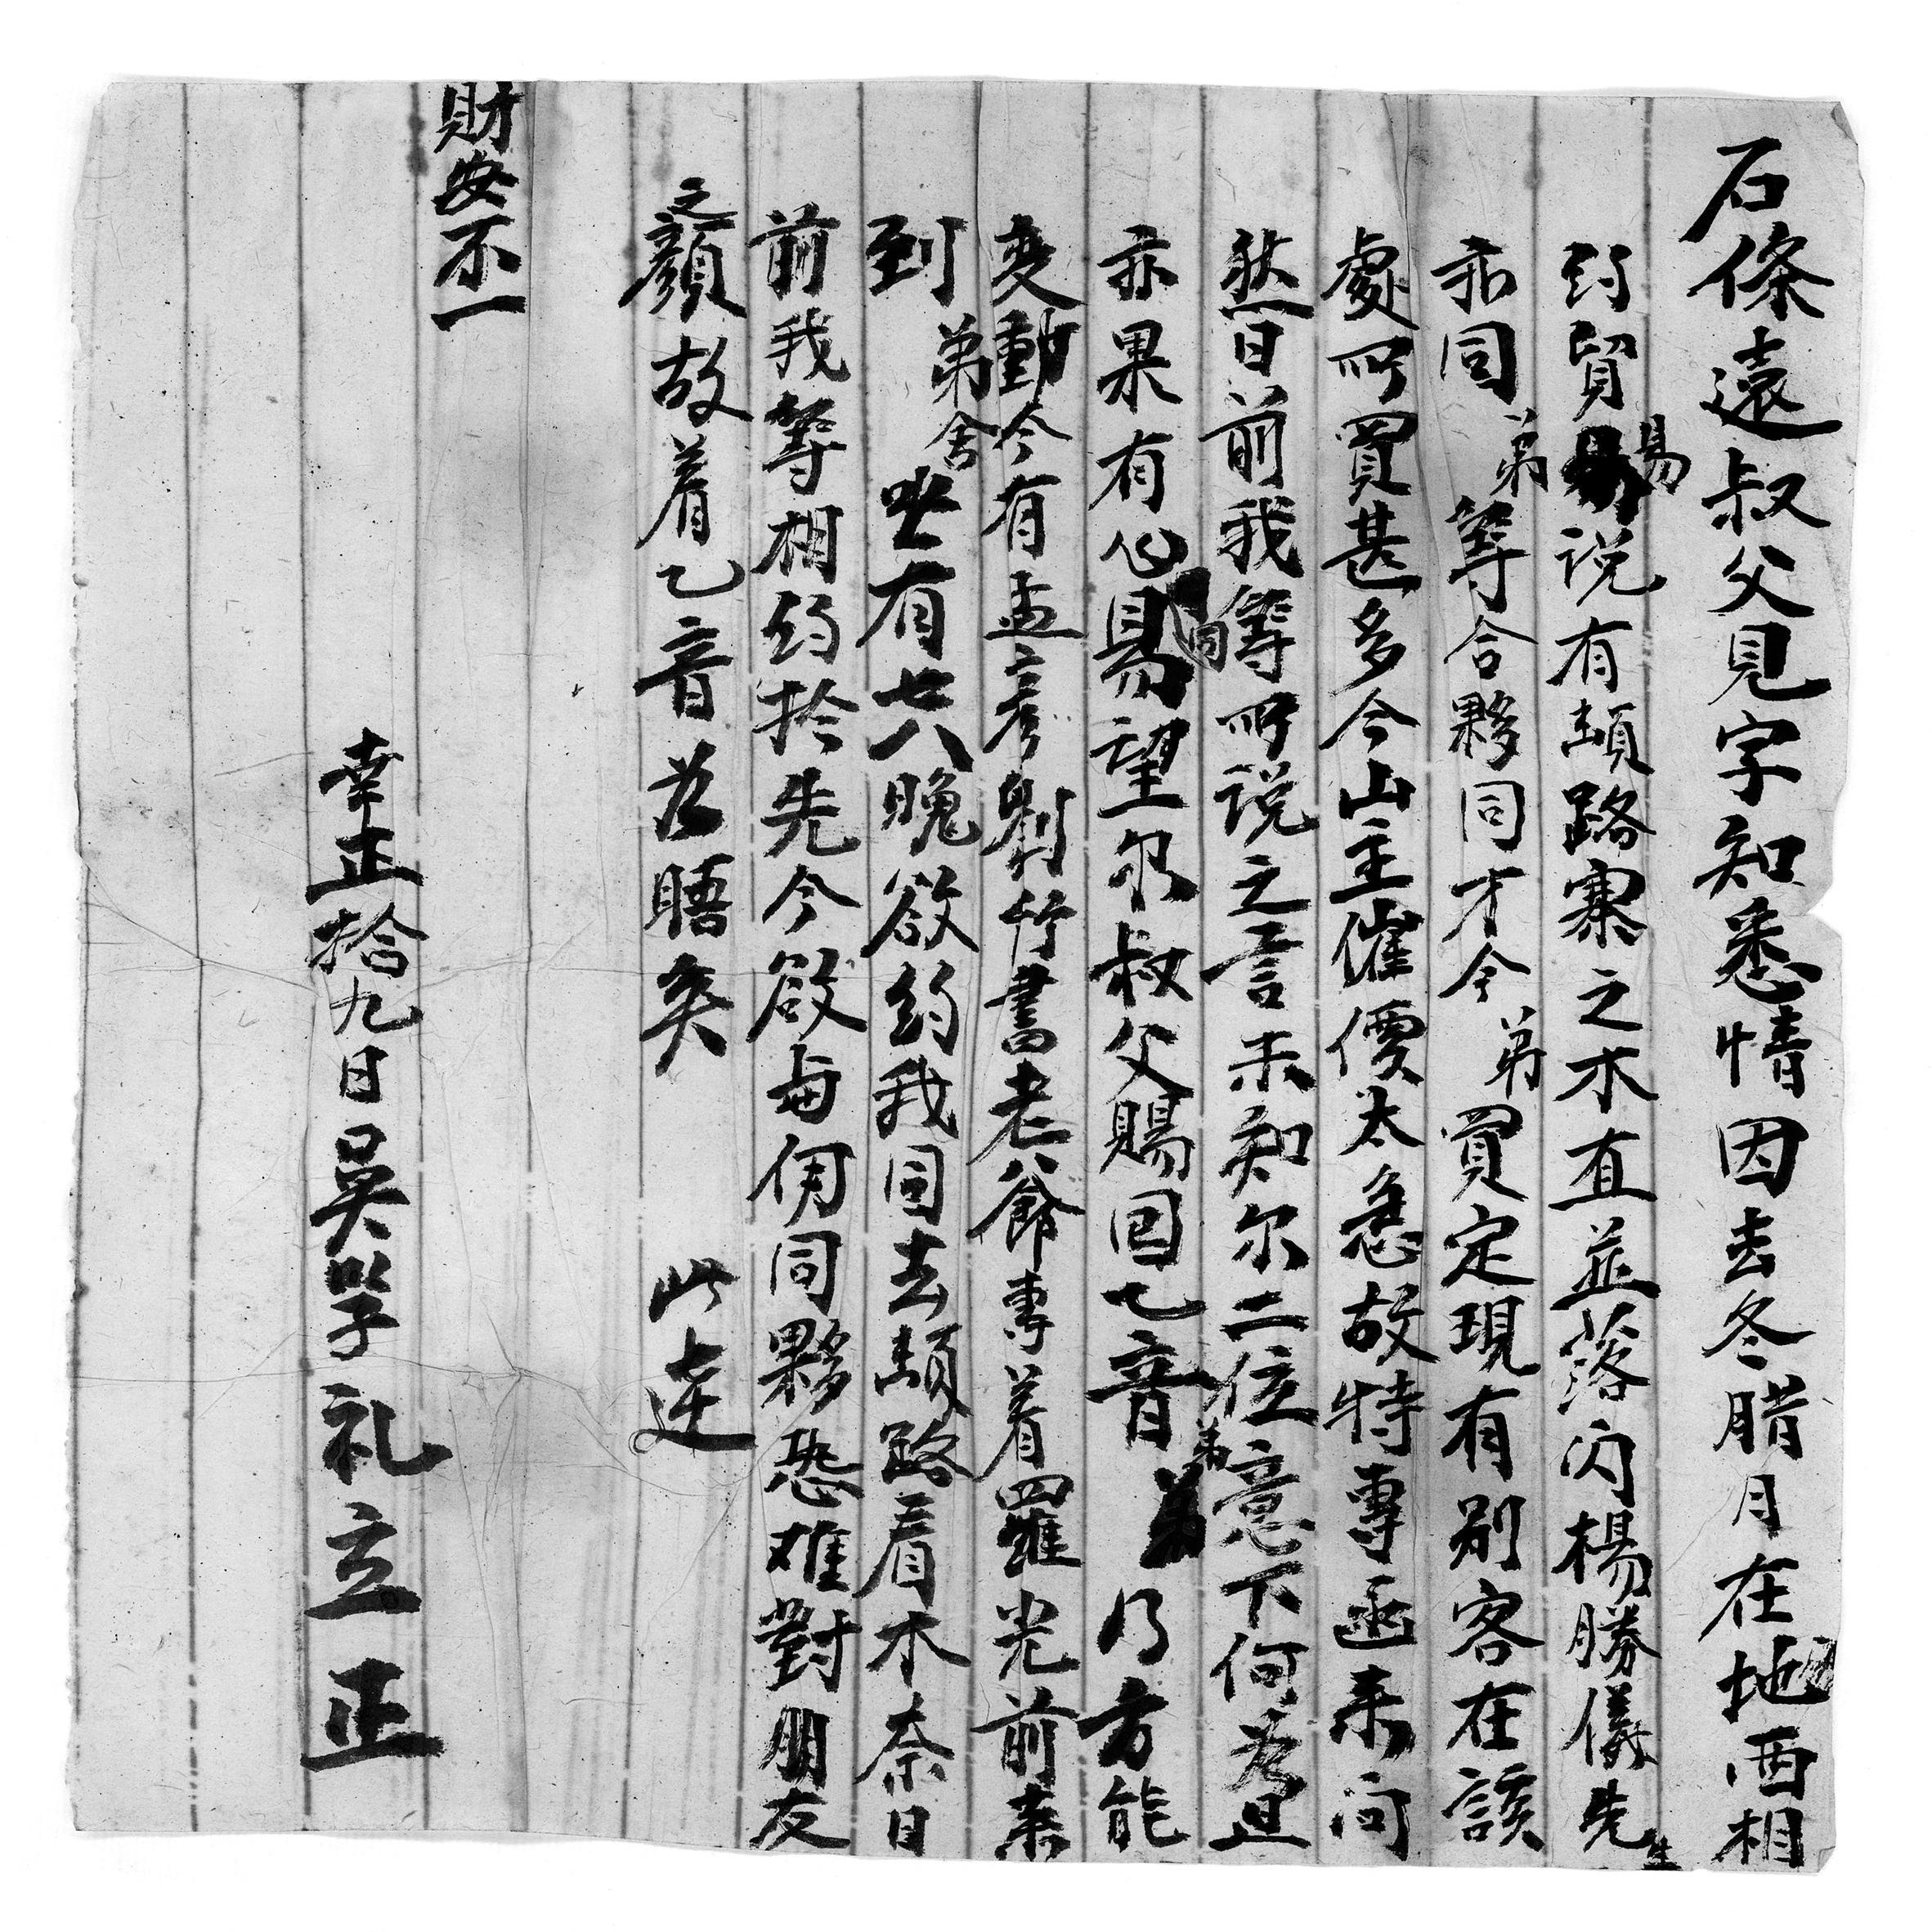 石條遠叔父見字知悉情因去冬腊月在地西相
約貿易説有頡路寨之木直並落丙楊勝儀先生
亦同弟等合夥同才今弟買定現有别客在該
處所買甚多今山主催價太急故特專函来问
然日前我等所说之言未知尔二位意下何为且
亦果有心易望尔叔父賜回乙音弟乃方能
变動今有孟彦剿竹書老爺專着羅光前来
到弟舍坐有七八晚欲約我同去頡路看木奈日
前我等相約於先今欲与伊同夥恐难對朋友
之顏故着乙音为晤矣 此达
財安不一
幸正拾九日吴学礼立正